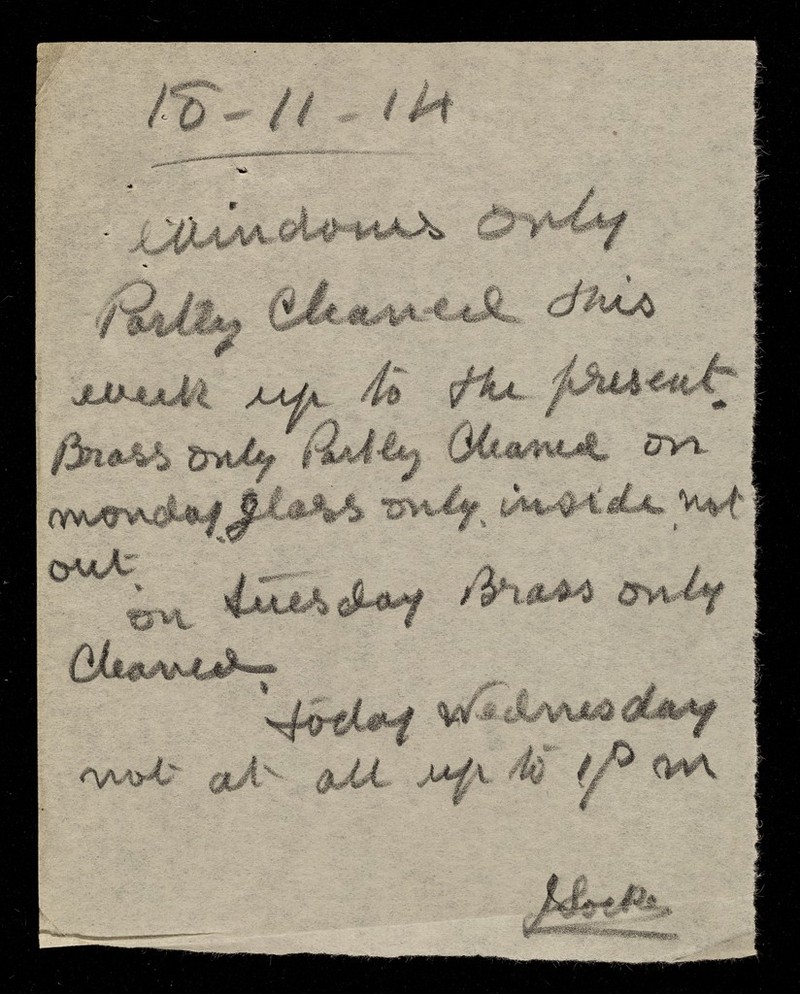 18-11-14
Windows only
Partly Cleaned this
week up to the present.
Brass only Partly Cleaned on
monday, glass only, inside, not
out.
on tuesday Brass only
Cleaned.
today Wednesday
not at all up to 1 P m
J Locke